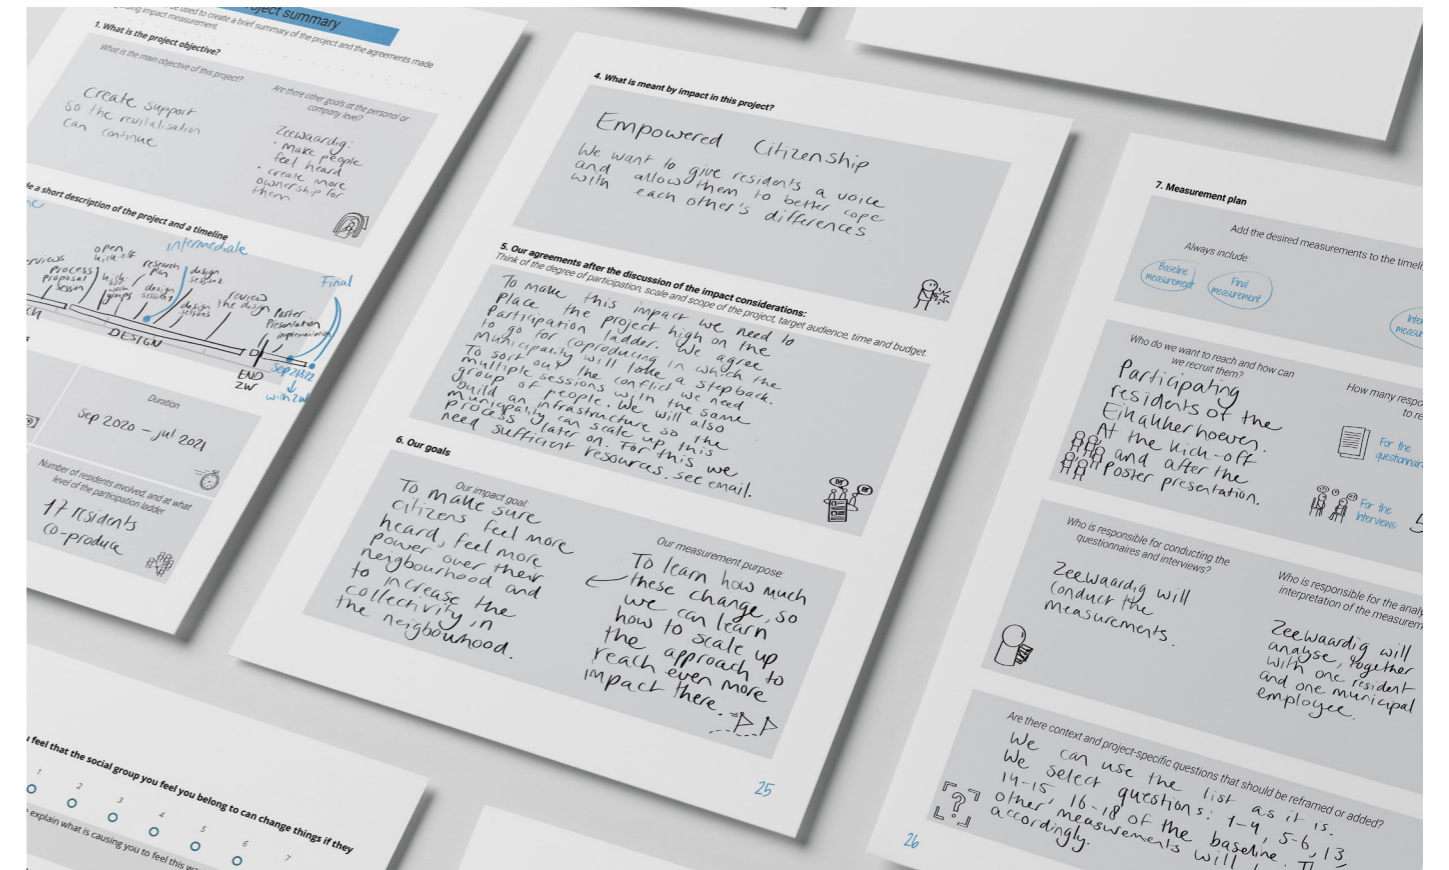 project summary
be used to create a brief summary of the project and the agreements made
impact measurement.
1. What is the project objective?
What is the main objective of this project?
create support
so the revitalisation
can continue
Are there other goals at the personal or
company level?
Zeewaardig:
• make people
feel heard
• create more
ownership for
them
a short description of the project and a timeline
open
kick-off
intermediate
process
proposal
session
work
groups
research
plan
design
session
design
session 2
design
sessions
review
the design
Final
Poster
Presentation
implementation
DESIGN
END
ZW
Sep 2022
with ZW
Duration
Sep 2020 – jul 2021
Number of residents involved, and at what
level of the participation ladder
17 residents
co-produce
feel that the social group you feel you belong to can change things if they
1 2 3 4 5 6 7
explain what is causing you to feel this
4. What is meant by impact in this project?
Empowered Citizenship
We want to give residents a voice
and allow them to better cope
with each other's differences.
5. Our agreements after the discussion of the impact considerations:
Think of the degree of participation, scale and scope of the project, target audience, time and budget.
To make, this impact we need to
place the project high on the
participation ladder. We agree
to go for coproducing in which the
municipality will take a step back.
To sort out the conflict we need
multiple sessions with the same
group of people. We will also
build an infrastructure so, the
municipality can scale up this
process later on. For this we
need sufficient resources. see email.
6. Our goals
Our impact goal:
To make sure
citizens feel more
heard, feel more
power over their
neigbourhood and
to increase the
collectivity in
the neigbourhood.
Our measurement purpose:
To learn how much
these change, so
we can learn
how to scale up
the approach to
reach even more
impact there.
25
7. Measurement plan
Add the desired measurements to the
Always include:
Baseline
measurement
Final
measurement
Who do we want to reach and how can
we recruit them?
Participating
residents of the
Eikakkerhoeven.
At the kick-off
and after the
Poster presentation.
How many
to
For the
For the
Interviews
Who is responsible for conducting the
questionnaires and interviews?
Zeewaardig will
conduct the
measurements.
Who is responsible for the
interpretation of the
Zeewaardig will
analyse, together
with one resident
and one municipal
employee.
Are there context and project-specific questions that should be reframed or added?
We can use the list as it is.
We select questions: 1-4, 5-6, 13,
14-15, 16-18 of the baseline.
other measurements will
accordingly.
26